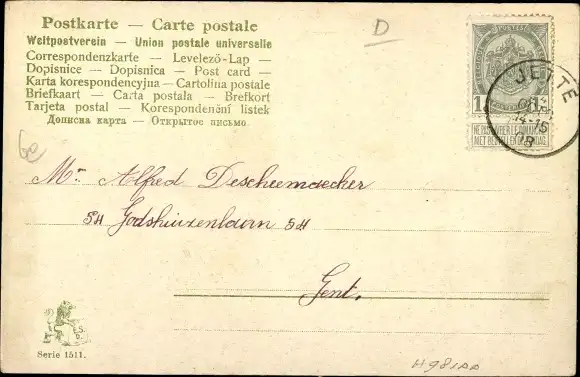 Postkarte — Carte postale
Weltpostverein — Union postale universelle
Correspondenzkarte — Levelező-Lap —
Dopisnice — Dopisnica — Post card —
Karta korespondencyjna — Cartolina postale
Briefkaart — Carta postala — Brefkort
Tarjeta postal — Korespondenční lístek
Дописна карта — Открытое письмо.
D
JETTE
14-15
08
1
NIET BESTELLEN OP ZONDAG.
Mr Alfred Descheemaecker
54 Godshuizenlaan 54
Gent.
Serie 1511.